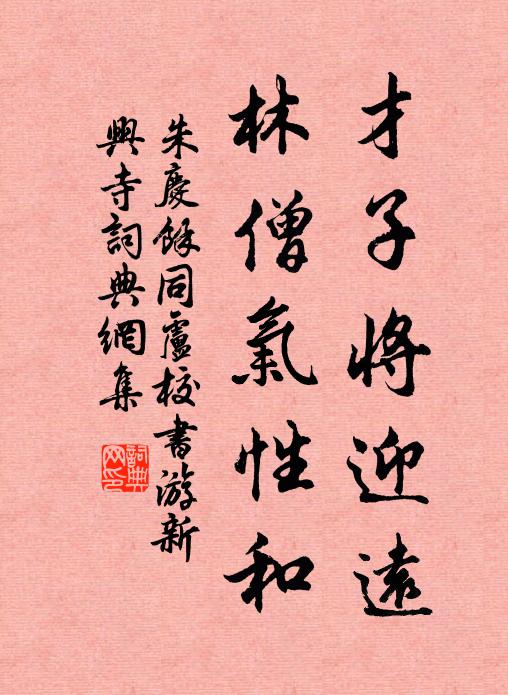 才子將迎遠
林僧氣性和
朱慶餘同盧校書游新
興寺詞典網集
詞典
网印